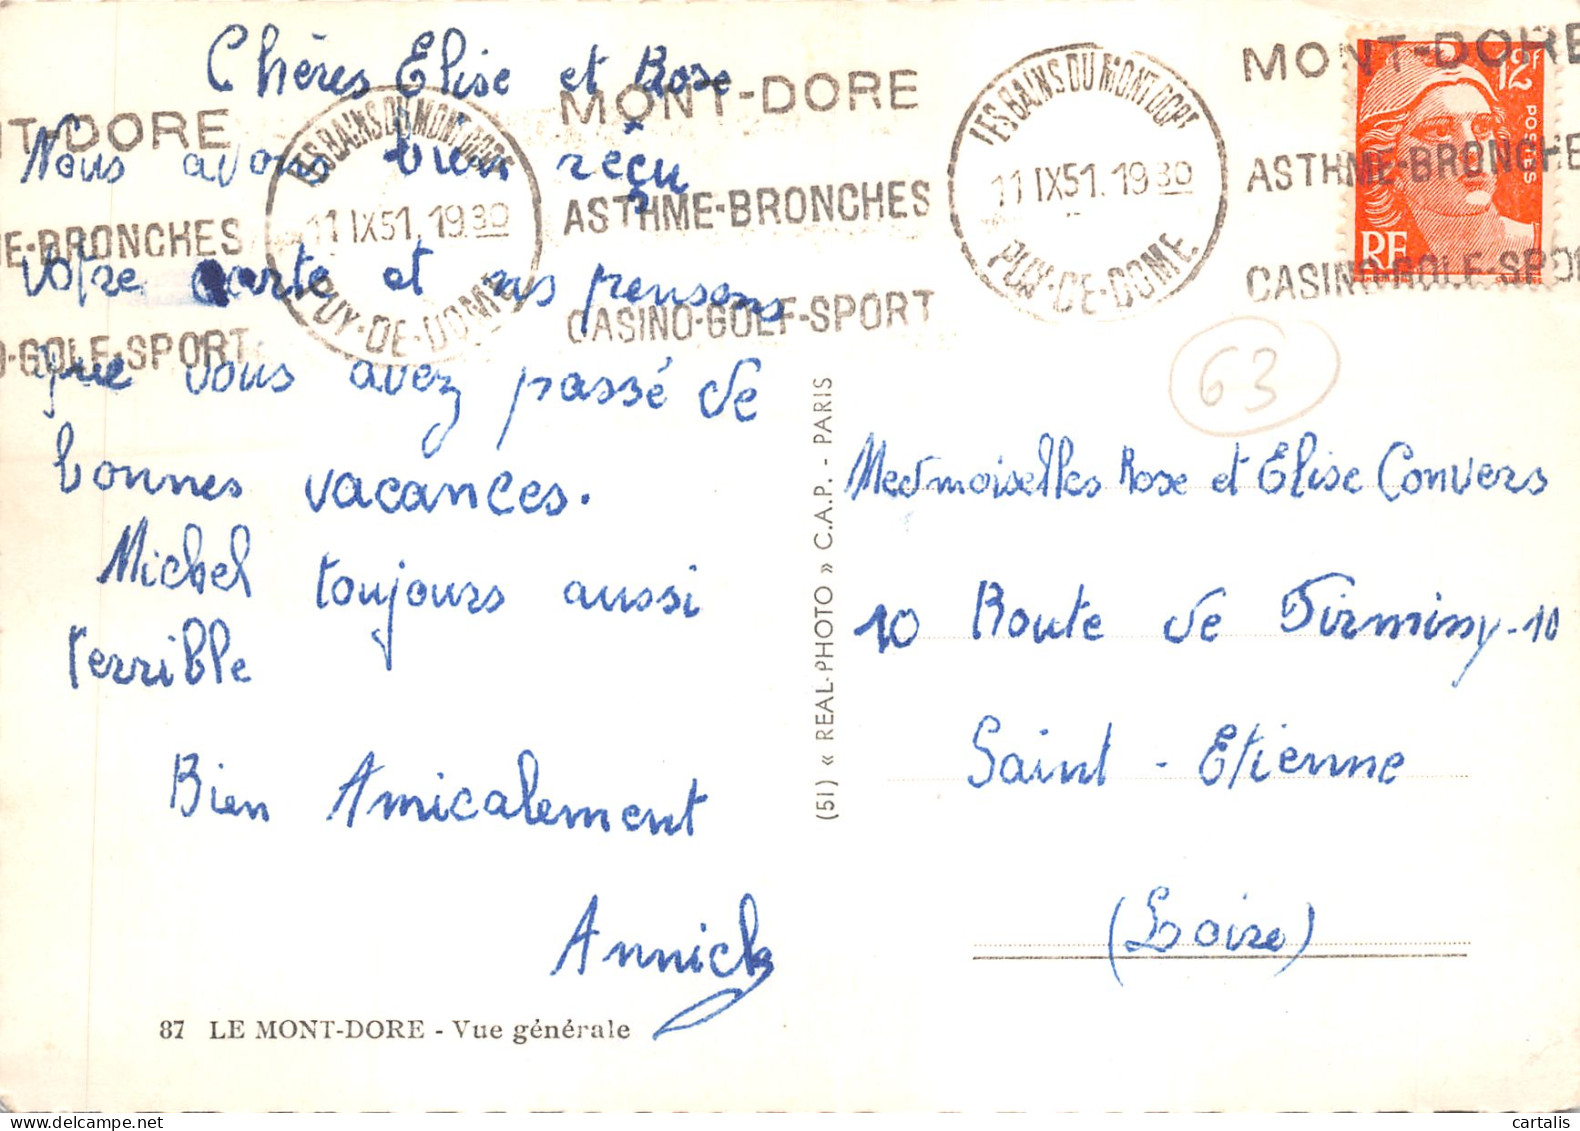 Chères Elise et Rose
Nous avons bien reçu
votre carte et ns pensons
que vous avez passé de
bonnes vacances.
Michel toujours aussi
terrible
Bien Amicalement
Annick
87 LE MONT-DORE - Vue générale
(51) « REAL-PHOTO » C.A.P. - PARIS
NT-DORE
E-BRONCHES
O-GOLF-SPORT
LES BAINS DU MONT DORE
11 IX 51. 19 30
PUY-DE-DOME
MONT-DORE
ASTHME-BRONCHES
CASINO-GOLF-SPORT
LES BAINS DU MONT DORE
11 IX 51. 19 30
PUY-DE-DOME
MONT-DORE
ASTHME-BRONCHE
CASINO-GOLF-SPO
12F
POSTES
RF
63
Medmoiselles Rose et Elise Convers
10 Route de Firminy-10
Saint-Etienne
(Loire)
cartalis